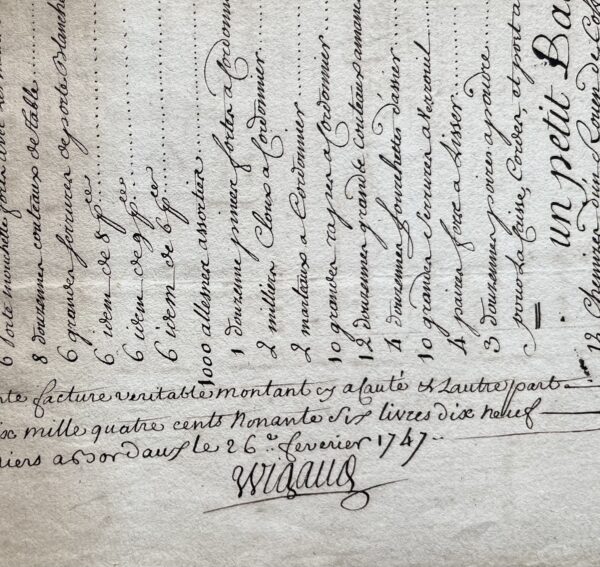 6 forte mouchette
8 douzennes couteaux de table
6 grandes serrures de porte Blanche
6 idem de 8 pce
6 idem de 7 pce
6 idem de 6 pce
1000 allesnes assorties
1 douzenne pinces fortes a Cordonnier
2 milliers Cloux a Cordonnier
2 marteaux a Cordonnier
10 grandes rapes a Cordonnier
12 douzennes grands couteaux
4 douzennes fourchettes d'assier
10 grandes Serrures a verrouil
4 paires fers a Lisser
3 douzennes poires a poudre
pour La Caisse, Cordes, et port a
un petit Ba
12 Chemises
te facture veritable montant cy a Cauté & Lautre part
ix mille quatre cents Nonante Six livres dix neuf
niers a Bordaux le 26e fevrier 1747
Wigaud